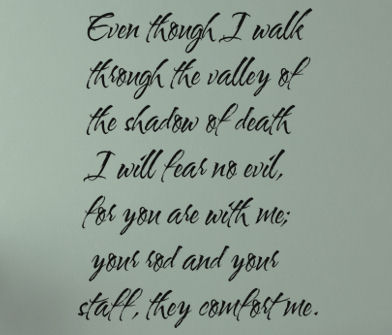 Even though I walk
through the valley of
the shadow of death
I will fear no evil,
for you are with me;
your rod and your
staff, they comfort me.